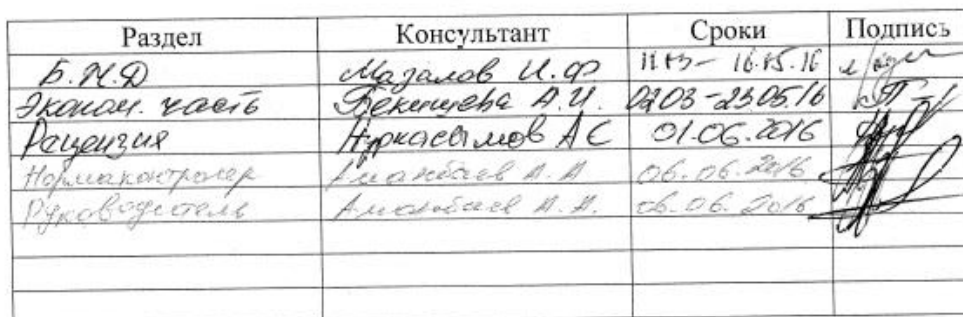 Раздел Консультант Сроки Подпись
Б.Ж.Д Мазалов И.Ф 11.03 - 16.05.16
Эконом. часть Бекишева А.И. 02.03 - 23.05.16
Рецензия Нуркасымов А С 01.06.2016
Нормаконтролер Аманбаев А.А 06.06.2016
Руководитель Аманбаев А.А. 06.06.2016